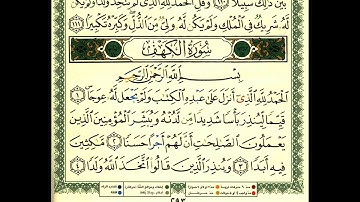 بَيْنَ ذَٰلِكَ سَبِيلًا ۝١١٠ وَقُلِ ٱلْحَمْدُ لِلَّهِ ٱلَّذِى لَمْ يَتَّخِذْ وَلَدًا وَلَمْ يَكُن
لَّهُۥ شَرِيكٌ فِى ٱلْمُلْكِ وَلَمْ يَكُن لَّهُۥ وَلِىٌّ مِّنَ ٱلذُّلِّ وَكَبِّرْهُ تَكْبِيرًۢا ۝١١١
سُورَةُ ٱلْكَهْفِ
بِسْمِ ٱللَّهِ ٱلرَّحْمَٰنِ ٱلرَّحِيمِ
ٱلْحَمْدُ لِلَّهِ ٱلَّذِىٓ أَنزَلَ عَلَىٰ عَبْدِهِ ٱلْكِتَٰبَ وَلَمْ يَجْعَل لَّهُۥ عِوَجَا ۝١
قَيِّمًا لِّيُنذِرَ بَأْسًا شَدِيدًا مِّن لَّدُنْهُ وَيُبَشِّرَ ٱلْمُؤْمِنِينَ ٱلَّذِينَ
يَعْمَلُونَ ٱلصَّٰلِحَٰتِ أَنَّ لَهُمْ أَجْرًا حَسَنًا ۝٢ مَّٰكِثِينَ
فِيهِ أَبَدًا ۝٣ وَيُنذِرَ ٱلَّذِينَ قَالُوا۟ ٱتَّخَذَ ٱللَّهُ وَلَدًا ۝٤
٢٩٣